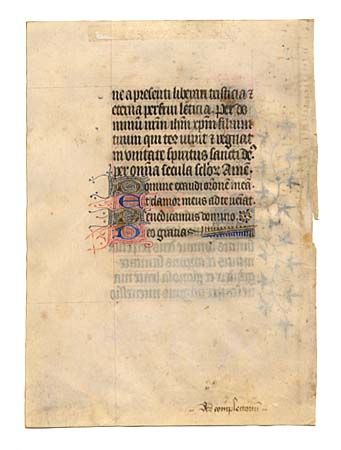 ne a presenti liberari tristicia ⁊
eterna perfrui leticia. Per do
minum nrm ihm xpm filium
tuum qui tec vivit ⁊ regnat
in unitate spiritus sancti deꝰ
per omnia secula sclor. Amē
Domine exaudi oronē meā
Et clamor meus ad te veniat
Benedicamus domino.
Deo gratias
Ad completoriū